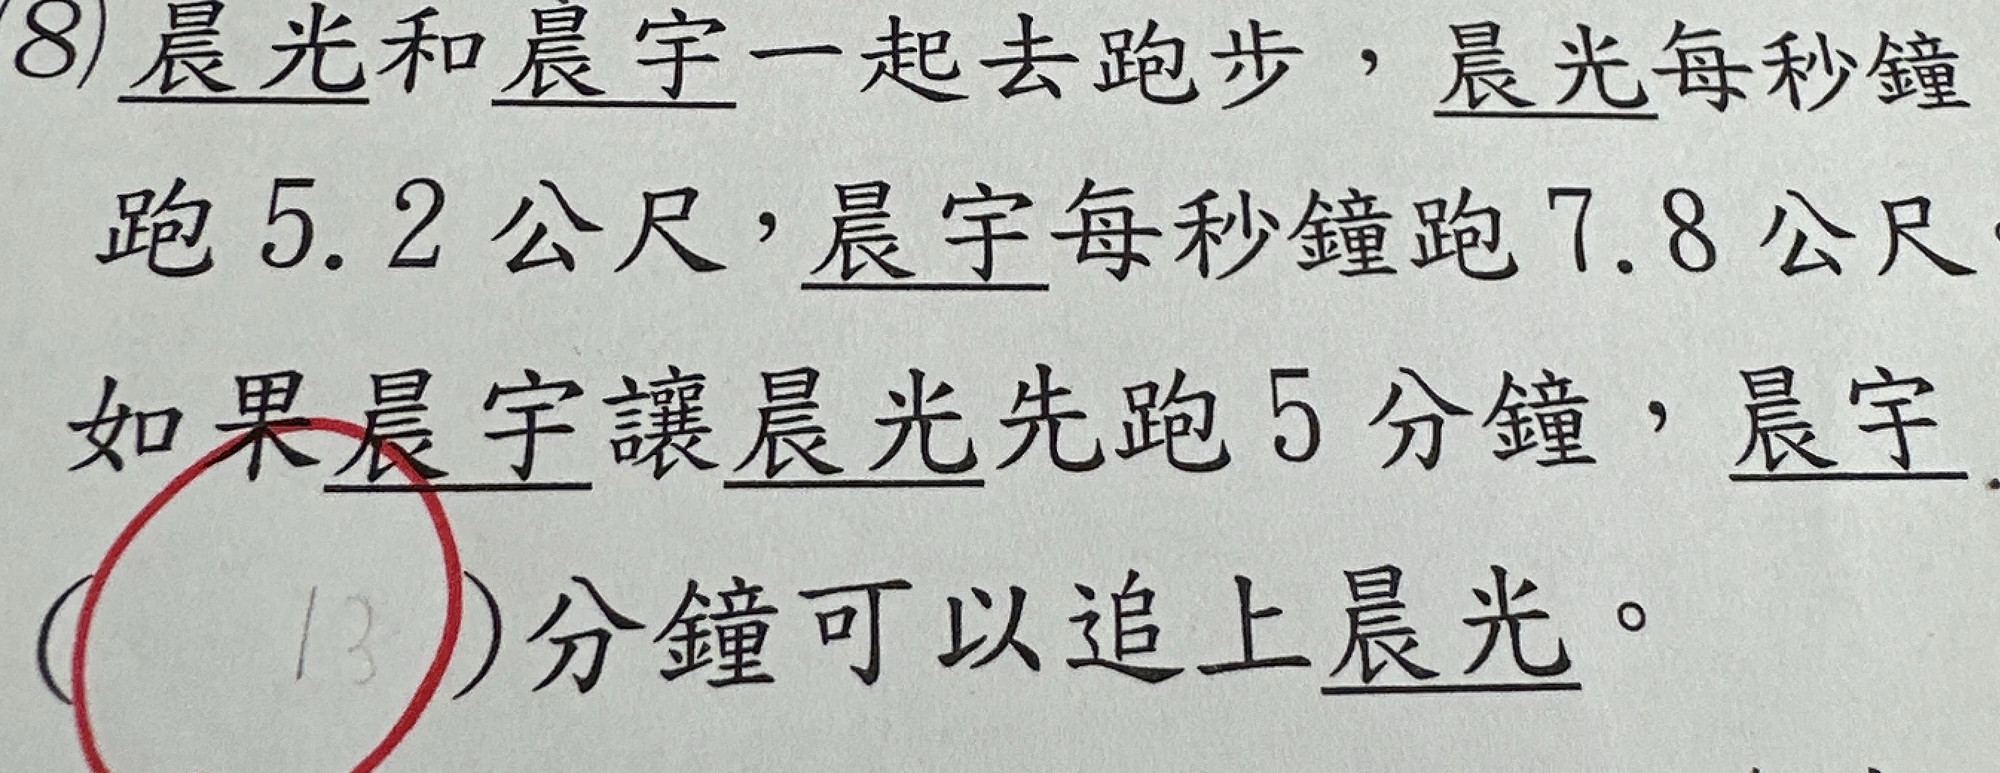 (8)晨光和晨宇一起去跑步，晨光每秒鐘
跑 5.2 公尺，晨宇每秒鐘跑 7.8 公尺
如果晨宇讓晨光先跑 5 分鐘，晨宇
( 13 )分鐘可以追上晨光。